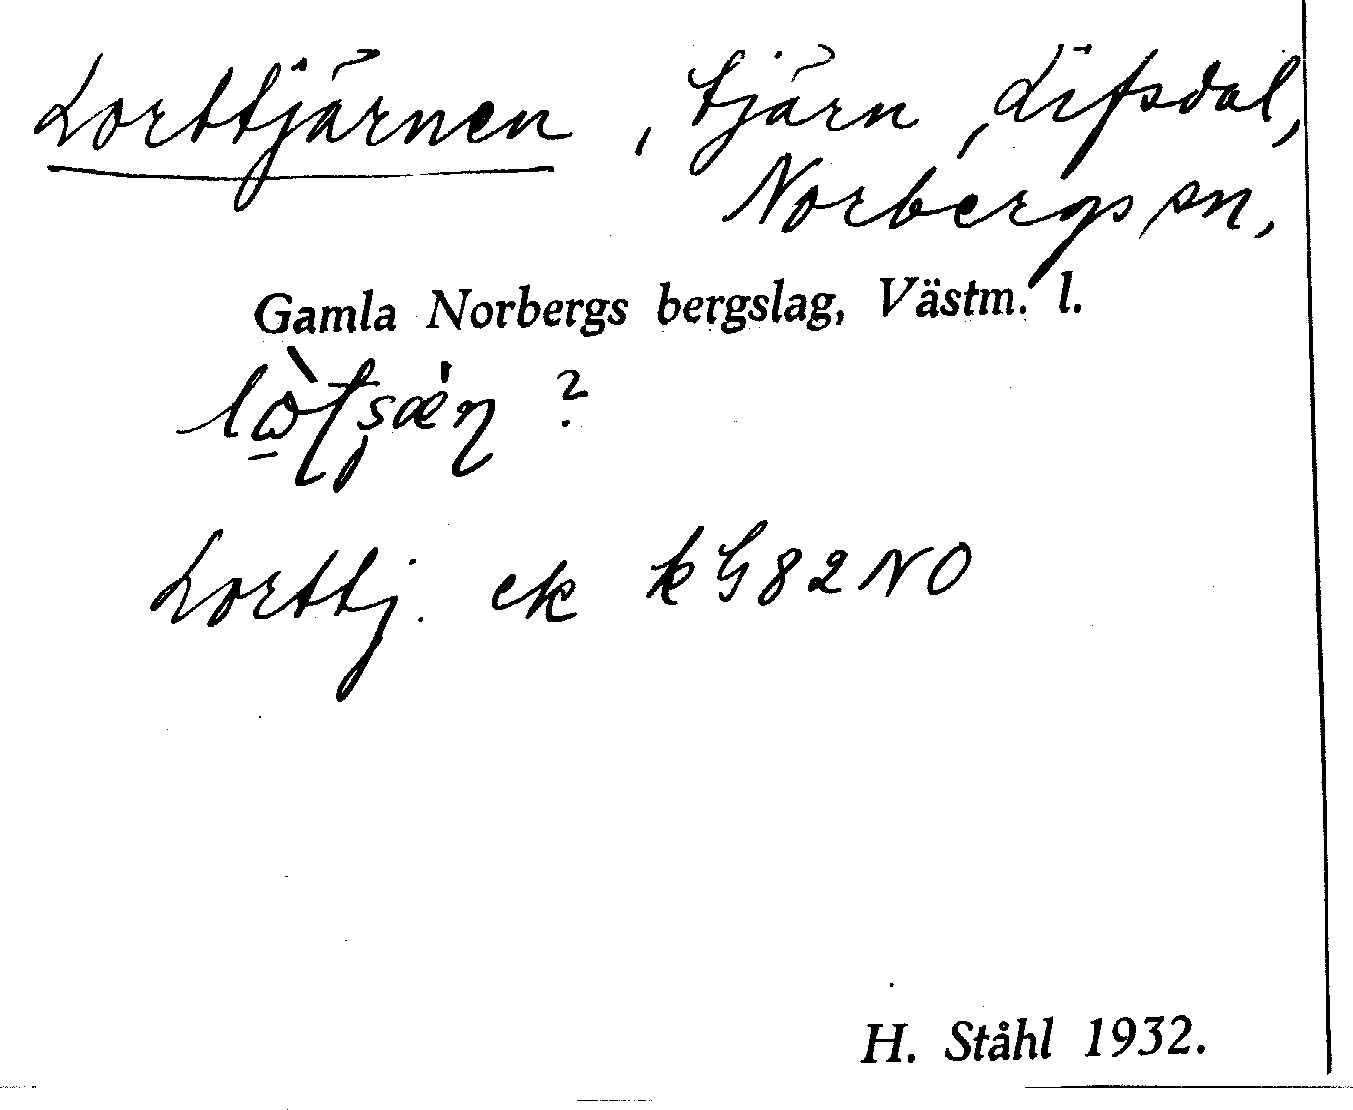 Lorttjärnen, tjärn, Lifsdal,
Norbergs sn,
Gamla Norbergs bergslag, Västm. l.
?
Lorttj. ek kG82NO
H. Ståhl 1932.